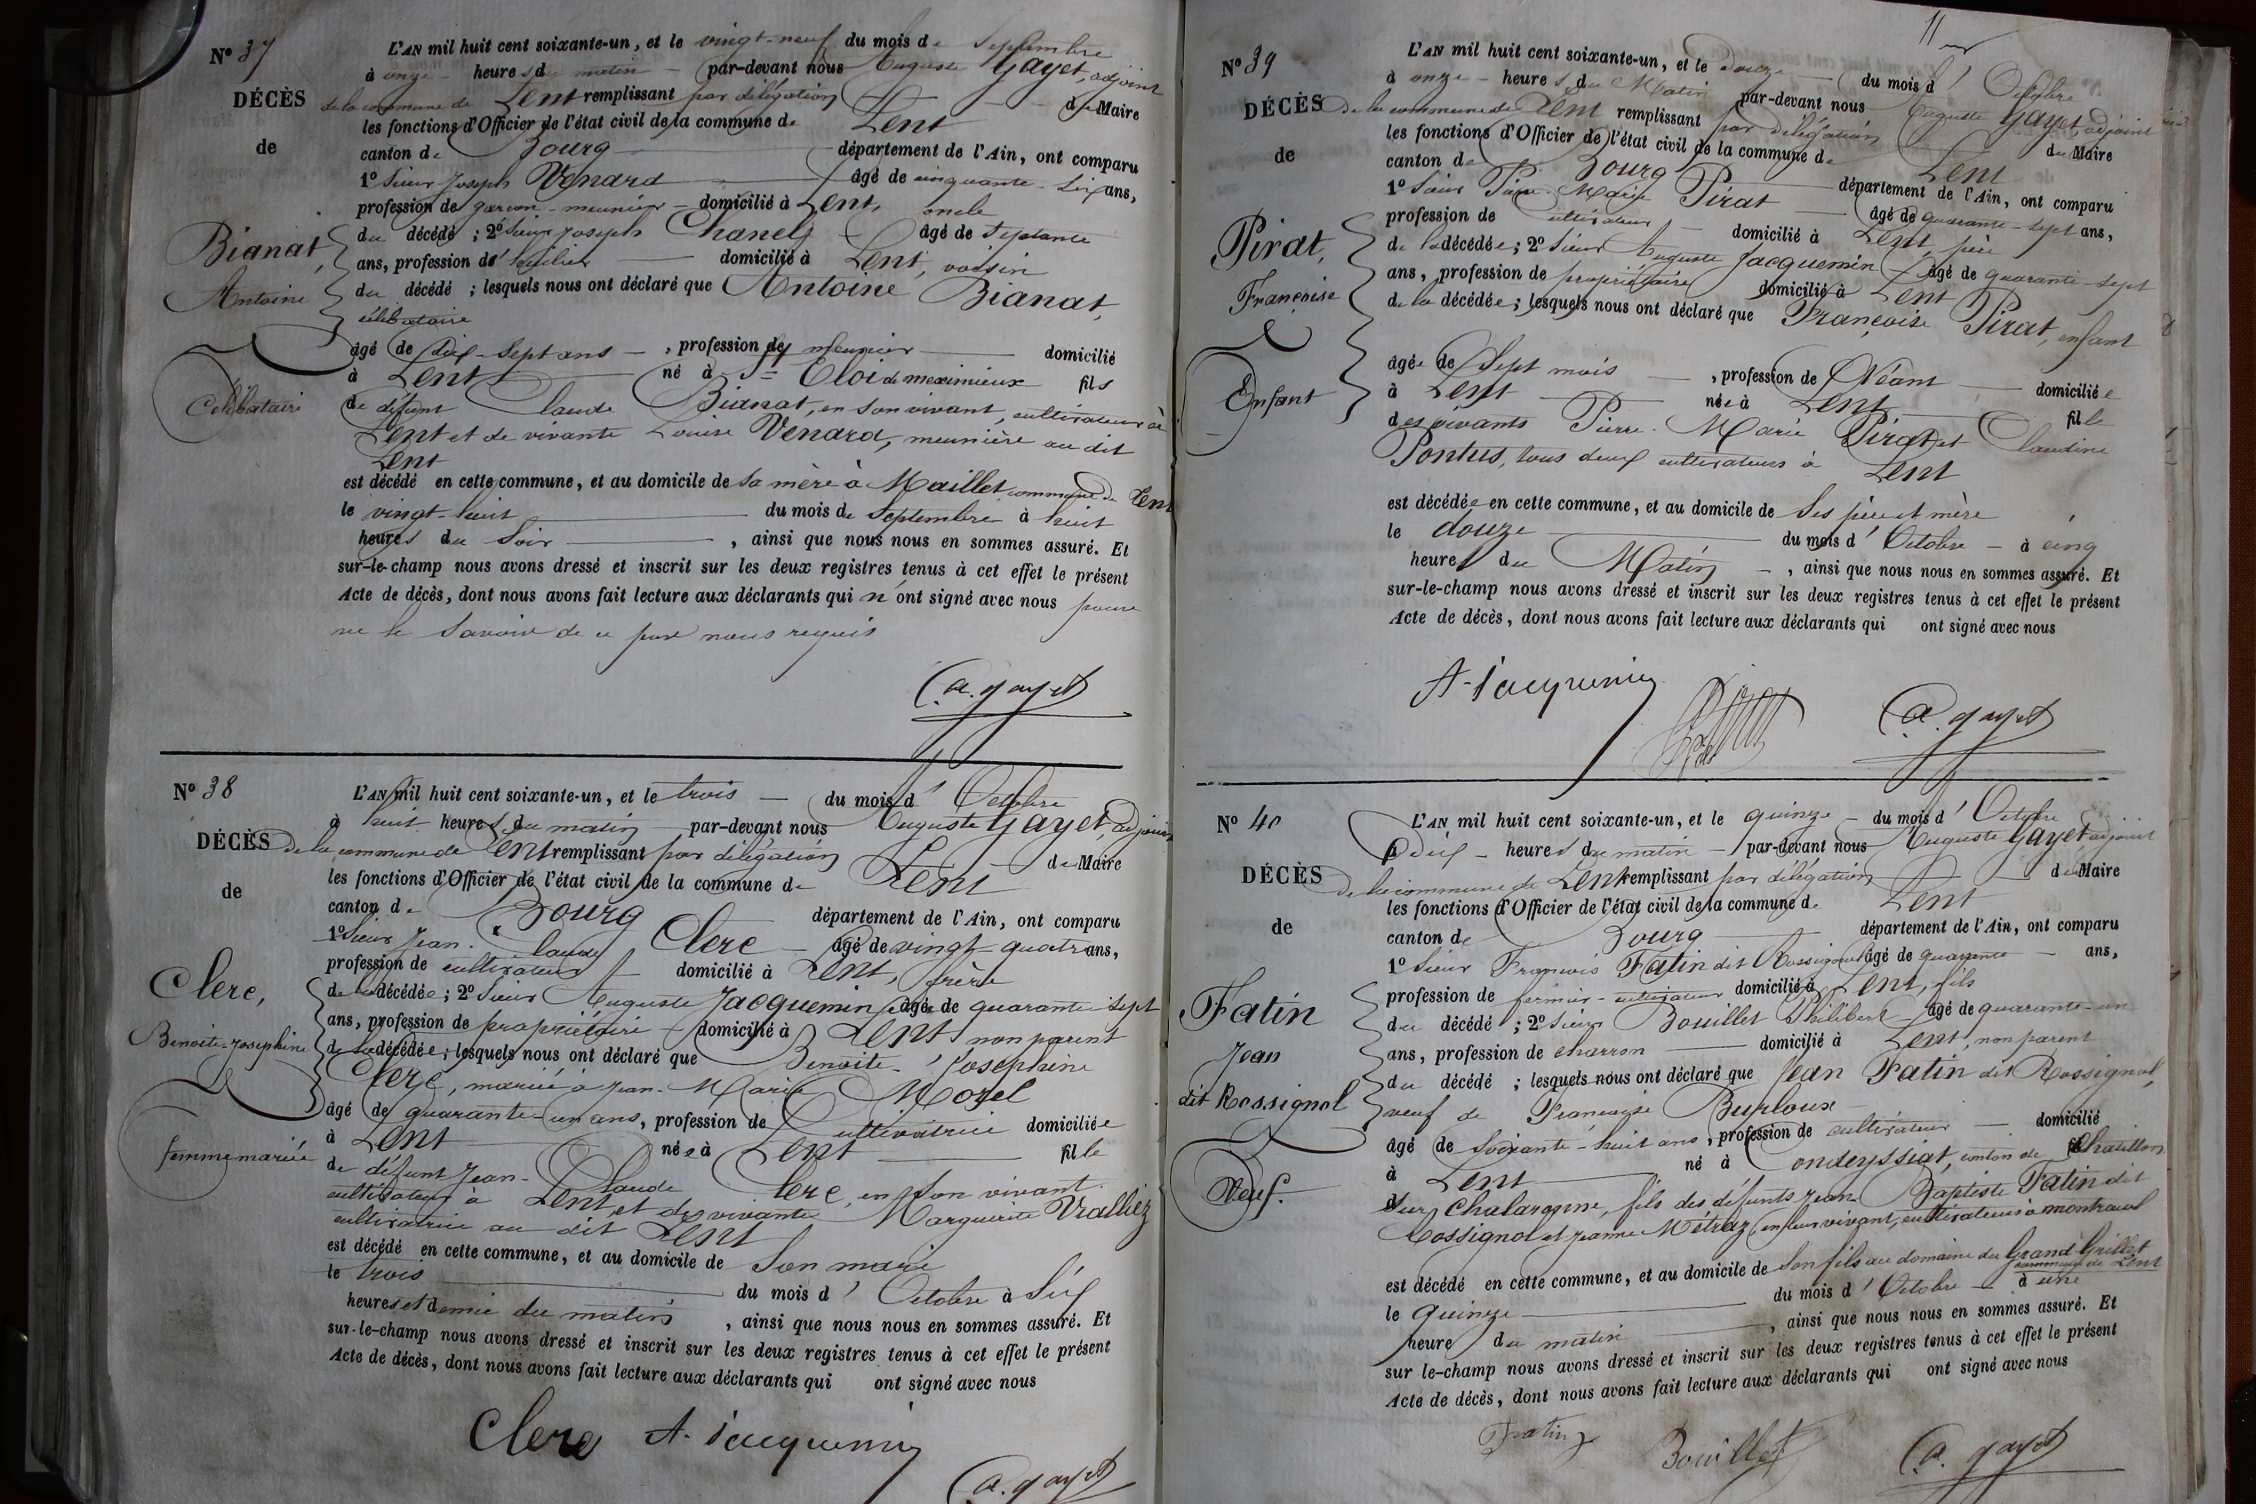 N° 37
DÉCÈS
de
Bianat,
Antoine
Célibataire
L'AN mil huit cent soixante-un, et le vingt-neuf du mois de Septembre
à onze heures du matin par-devant nous Auguste Gayet, adjoint
de la commune de Lent remplissant par délégation du Maire
les fonctions d'Officier de l'état civil de la commune de Lent
canton de Bourg département de l'Ain, ont comparu
1° Sieur Joseph Venard âgé de cinquante-six ans,
profession de garçon-meunier domicilié à Lent, oncle
du décédé ; 2° Sieur Joseph Chanel âgé de septante
ans, profession d' huilier domicilié à Lent, voisin
du décédé ; lesquels nous ont déclaré que Antoine Bianat,
célibataire
âgé de dix-sept ans, profession de meunier domicilié
à Lent né à St Eloi de meximieux fils
de défunt Claude Bianat, en son vivant, cultivateur à
Lent et de vivante Louise Venard, meunière au dit
Lent
est décédé en cette commune, et au domicile de sa mère à Maillet commune de Lent
le vingt-huit du mois de Septembre à huit
heures du soir, ainsi que nous nous en sommes assuré. Et
sur-le-champ nous avons dressé et inscrit sur les deux registres tenus à cet effet le présent
Acte de décès, dont nous avons fait lecture aux déclarants qui n'ont signé avec nous pour
ne le savoir de ce par nous requis
A. gayet
N° 38
DÉCÈS
de
Clerc,
Benoite-Josephine
femme mariée
L'AN mil huit cent soixante-un, et le trois du mois d' Octobre
à huit heures du matin par-devant nous Auguste Gayet, adjoint
de la commune de Lent remplissant par délégation du Maire
les fonctions d'Officier de l'état civil de la commune de Lent
canton de Bourg département de l'Ain, ont comparu
1° Sieur Jean-Claude Clerc âgé de vingt-quatre ans,
profession de cultivateur domicilié à Lent, frère
de la décédée ; 2° Sieur Auguste Jacquemin âgé de quarante-sept
ans, profession de propriétaire domicilié à Lent non parent
de la décédée ; lesquels nous ont déclaré que Benoite-Josephine
Clerc, mariée à Jean-Marie Morel
âgé de quarante-un ans, profession de cultivatrice domiciliée
à Lent née à Lent fille
de défunt Jean-Claude Clerc, en son vivant
cultivateur à Lent, et de vivante Marguerite Vralliez
cultivatrice au dit Lent
est décédé en cette commune, et au domicile de son mari
le trois du mois d' Octobre à six
heures et demie du matin, ainsi que nous nous en sommes assuré. Et
sur-le-champ nous avons dressé et inscrit sur les deux registres tenus à cet effet le présent
Acte de décès, dont nous avons fait lecture aux déclarants qui ont signé avec nous
Clerc A. Jacquemin
A. gayet
11
N° 39
DÉCÈS
de
Pirat,
Françoise
Enfant
L'AN mil huit cent soixante-un, et le douze du mois d' Octobre
à onze heures du Matin par-devant nous Auguste Gayet, adjoint
de la commune de Lent remplissant par délégation du Maire
les fonctions d'Officier de l'état civil de la commune de Lent
canton de Bourg département de l'Ain, ont comparu
1° Sieur Pierre-Marie Pirat âgé de quarante-sept ans,
profession de cultivateur domicilié à Lent, père
de la décédée ; 2° Sieur Auguste Jacquemin âgé de quarante-sept
ans, profession de propriétaire domicilié à Lent
de la décédée ; lesquels nous ont déclaré que Françoise Pirat, enfant
âgée de Sept mois, profession de Néant domiciliée
à Lent née à Lent fille
des vivants Pierre-Marie Pirat et Claudine
Pontus, tous deux cultivateurs à Lent
est décédée en cette commune, et au domicile de ses père et mère
le douze du mois d' Octobre à cinq
heures du Matin, ainsi que nous nous en sommes assuré. Et
sur-le-champ nous avons dressé et inscrit sur les deux registres tenus à cet effet le présent
Acte de décès, dont nous avons fait lecture aux déclarants qui ont signé avec nous
A. Jacquemin A. gayet
N° 40
DÉCÈS
de
Fatin
Jean
dit Rossignol
Veuf.
L'AN mil huit cent soixante-un, et le quinze du mois d' Octobre
à dix heures du matin par-devant nous Auguste Gayet adjoint
de la commune de Lent remplissant par délégation du Maire
les fonctions d'Officier de l'état civil de la commune de Lent
canton de Bourg département de l'Ain, ont comparu
1° Sieur François Fatin dit Rossignol âgé de quarante ans,
profession de fermier-cultivateur domicilié à Lent, fils
du décédé ; 2° Sieur Bouillet Philibert âgé de quarante-un
ans, profession de charron domicilié à Lent, non parent
du décédé ; lesquels nous ont déclaré que Jean Fatin dit Rossignol,
veuf de Françoise Burloux
âgé de soixante-huit ans, profession de cultivateur domicilié
à Lent né à Condeyssiat, canton de Chatillon
sur Chalaronne, fils des défunts Jean Baptiste Fatin dit
Rossignol et Jeanne Métraz, en leur vivant, cultivateurs à montracol
est décédé en cette commune, et au domicile de son fils au domaine du Grand Grillet
commune de Lent
le quinze du mois d' Octobre à une
heure du matin, ainsi que nous nous en sommes assuré. Et
sur le-champ nous avons dressé et inscrit sur les deux registres tenus à cet effet le présent
Acte de décès, dont nous avons fait lecture aux déclarants qui ont signé avec nous
Fatin Bouillet A. gayet